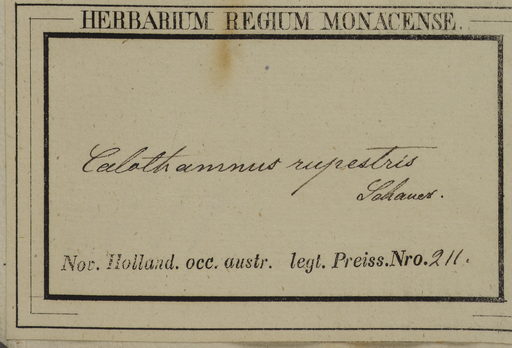 HERBARIUM REGIUM MONACENSE.
Calothamnus rupestris
Schauer.
Nov. Holland. occ. austr. legt. Preiss. Nro. 211.